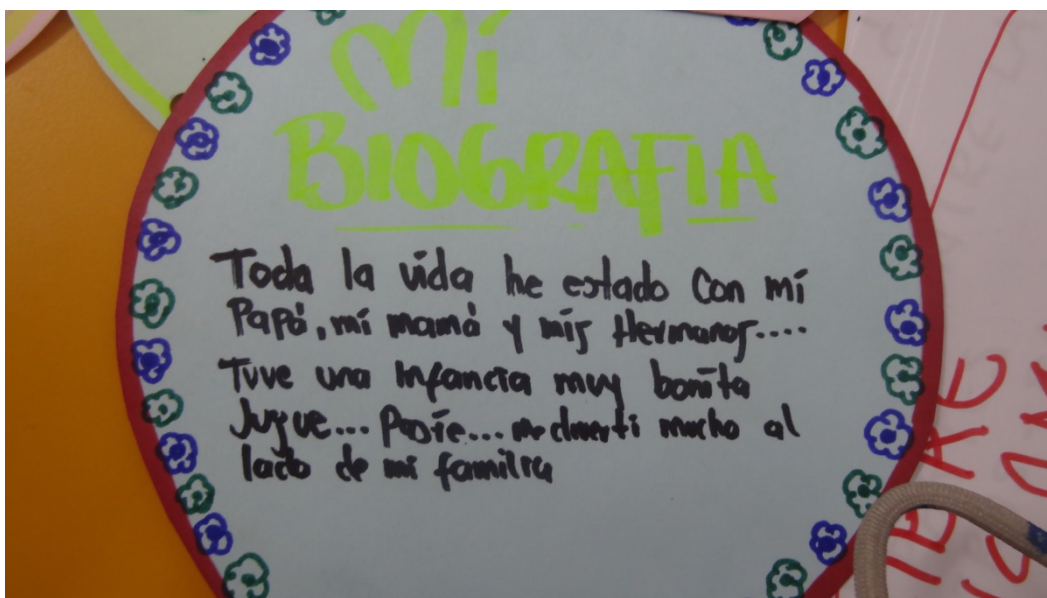 Mi
BIOGRAFIA
Toda la vida he estado con mi
Papá, mi mamá y mis Hermanos....
Tuve una infancia muy bonita
Jugue... Pasíe... me divertí mucho al
lado de mi familia